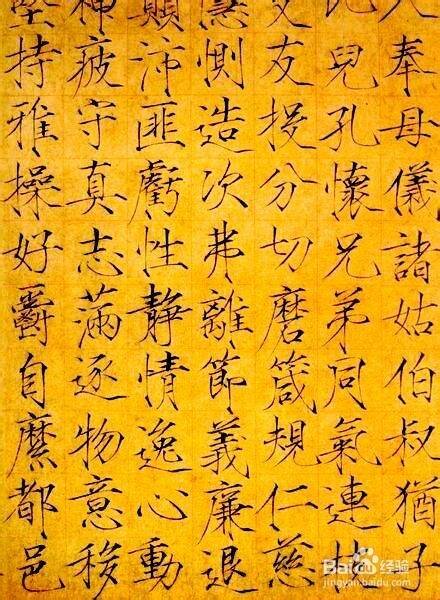 入奉母儀諸姑伯叔猶
比兒孔懷兄弟同氣連枝
交友投分切磨箴規仁慈
隱惻造次弗離節義廉退
顛沛匪虧性靜情逸心動
神疲守真志滿逐物意移
堅持雅操好爵自縻都邑
Baidu经验
jingyan.baidu.com